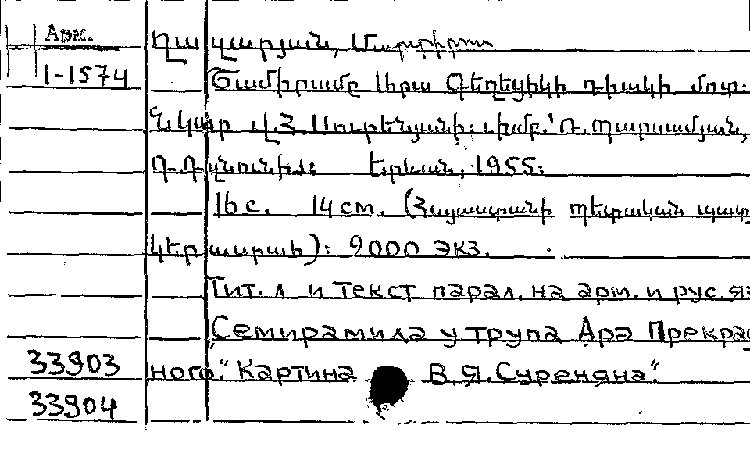 Арм.
1-1574
Ղազարյան, Մարտիրոս
Շամիրամը Արա Գեղեցիկի դիակի մոտ:
Նկար Վ. Հ. Սուրենյանի: Խմբ.՝ Ռ. Պարսամյան,
Ռ. Դ
Երևան, 1955:
16 с. 14 см. (Հայաստանի պետական պատ
կերասրահ): 2000 экз.
Тит. л и текст парал. на арм. и рус. яз
Семирамида у трупа Ара Прекрас
ного." Картина В. Я. Суреняна".
33903
33904